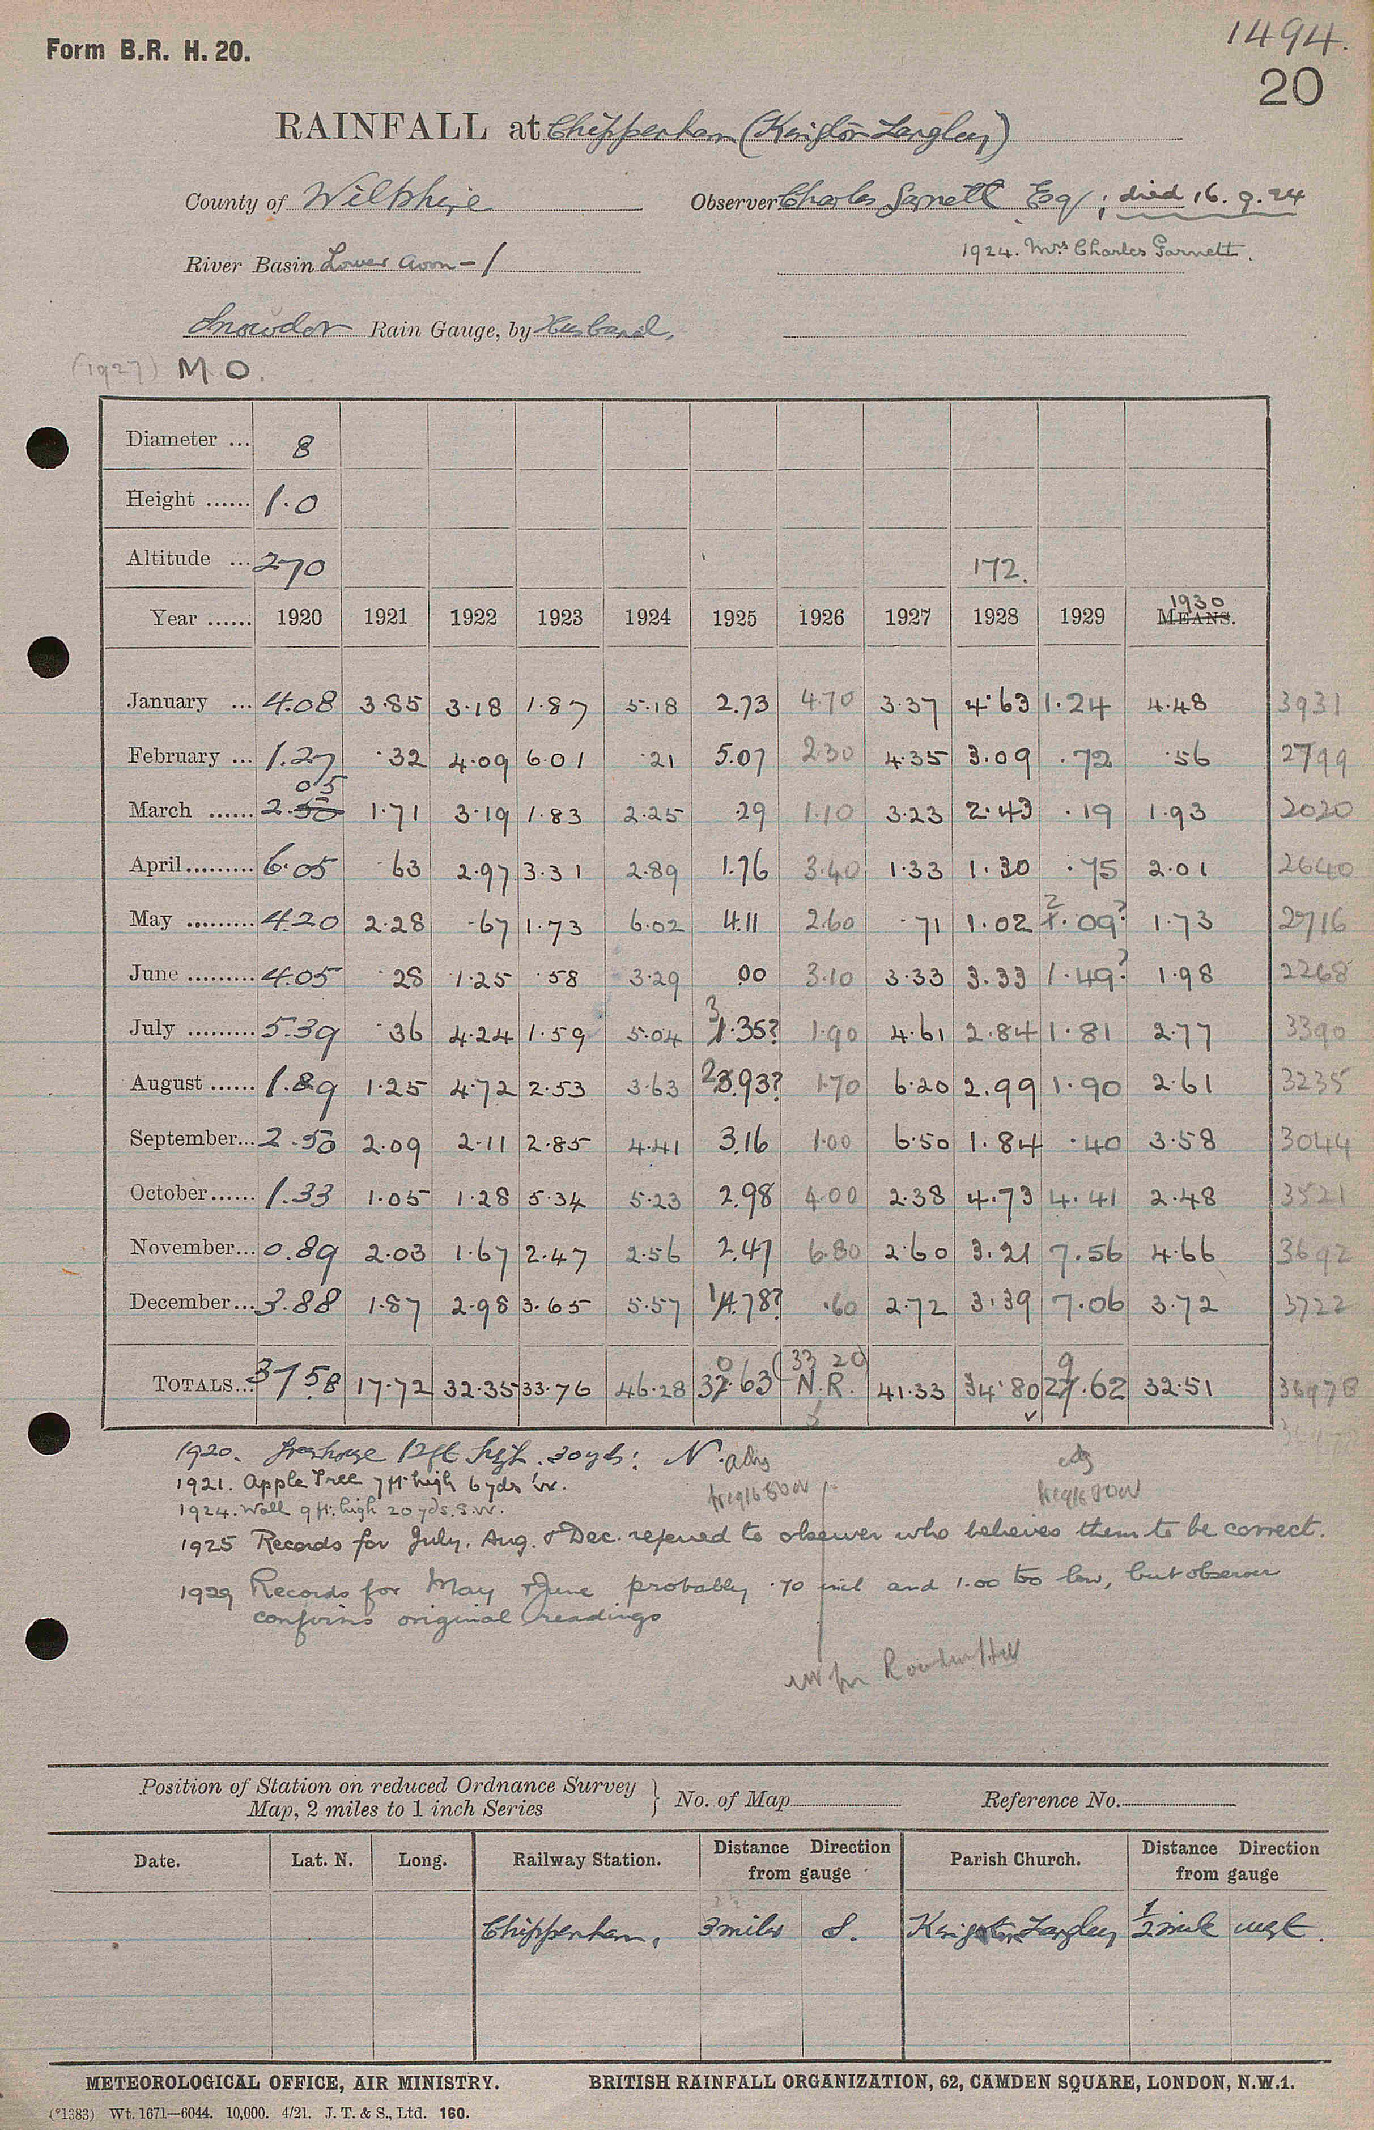 1494.
Form B.R. H. 20.
20
RAINFALL at Chippenham (Kington Langley)
County of Wiltshire Observer Charles Garnett Esq; died 16.9.24
1924. Mrs Charles Garnett.
River Basin Lower Avon - 1
Snowdon Rain Gauge, by Husband,
(1927) M.O.
Diameter ... 8
Height ...... 1.0
Altitude ... 270 172.
Year ...... 1920 1921 1922 1923 1924 1925 1926 1927 1928 1929 MEANS. 1930
January ... 4.08 3.85 3.18 1.87 5.18 2.73 4.70 3.37 4.63 1.24 4.48 3931
February ... 1.27 .32 4.09 6.01 .21 5.07 2.30 4.35 3.09 .72 .56 2799
March ...... 2.50 05 1.71 3.19 1.83 2.25 .29 1.10 3.23 2.43 .19 1.93 2020
April ......... 6.05 .63 2.97 3.31 2.89 1.76 3.40 1.33 1.30 .75 2.01 2640
May ......... 4.20 2.28 .67 1.73 6.02 4.11 2.60 .71 1.02 2 1.09? 1.73 2716
June ......... 4.05 .28 1.25 .58 3.29 .00 3.10 3.33 3.33 1.49? 1.98 2268
July ......... 5.39 .36 4.24 1.59 5.04 3 1.35? 1.90 4.61 2.84 1.81 2.77 3390
August ...... 1.89 1.25 4.72 2.53 3.63 2 3.93? 1.70 6.20 2.99 1.90 2.61 3235
September... 2.50 2.09 2.11 2.85 4.41 3.16 1.00 6.50 1.84 .40 3.58 3044
October...... 1.33 1.05 1.28 5.34 5.23 2.98 4.00 2.38 4.73 4.41 2.48 3521
November... 0.89 2.03 1.67 2.47 2.56 2.47 6.80 2.60 3.21 7.56 4.66 3692
December... 3.88 1.87 2.98 3.65 5.57 1 4.78? .60 2.72 3.39 7.06 3.72 3722
TOTALS... 37.58 17.72 32.35 33.76 46.28 32.63 0 (33 20) N.R. 41.33 34.80 27.62 9 32.51 36978
1920. Greenhouse 12ft high. 30 yds: N.
1921. Apple Tree 7 ft. high 6 yds W.
1924. Wall 9 ft. high 20 yds. S.W.
1925 Records for July, Aug. & Dec. referred to observer who believes them to be correct.
1929 Records for May & June probably .70 and 1.00 too low, but observer
confirms original readings
Position of Station on reduced Ordnance Survey
Map, 2 miles to 1 inch Series } No. of Map Reference No.
Date. Lat. N. Long. Railway Station. Distance Direction from gauge Parish Church. Distance Direction from gauge
Chippenham, 3 miles S. Kington Langley 1/2 mile west.
METEOROLOGICAL OFFICE, AIR MINISTRY. BRITISH RAINFALL ORGANIZATION, 62, CAMDEN SQUARE, LONDON, N.W.1.
(*1383) Wt. 1671—6044. 10,000. 4/21. J. T. & S., Ltd. 160.